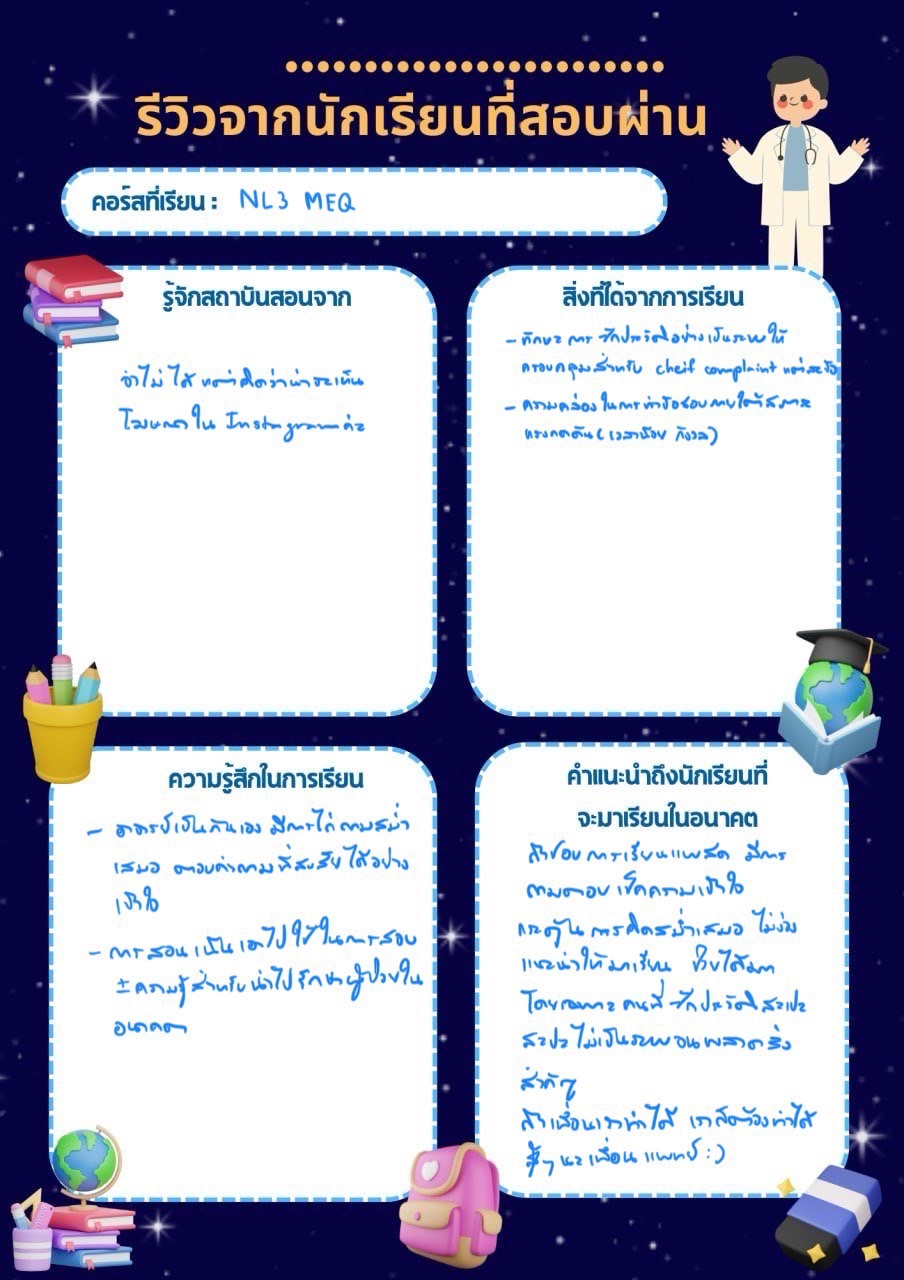 รีวิวจากนักเรียนที่สอบผ่าน
คอร์สที่เรียน : NL3 MEQ
รู้จักสถาบันสอนจาก
จำไม่ได้ แต่คิดว่าน่าจะเห็น
โฆษณาใน Instagram ค่ะ
สิ่งที่ได้จากการเรียน
- ทักษะการซักประวัติอย่างเป็นระบบให้
ครอบคลุมสำหรับ cheif complaint แต่ละข้อ
- ความคล่องในการทำข้อสอบภายใต้สภาวะ
แรงกดดัน (เวลาน้อย กังวล)
ความรู้สึกในการเรียน
- อาจารย์เป็นกันเอง มีการไถ่ถามสม่ำ
เสมอ ตอบคำถามที่สงสัยได้อย่าง
เข้าใจ
- การสอนเน้นเอาไปใช้ในการสอบ
± ความรู้สำหรับนำไปรักษาผู้ป่วยใน
อนาคต
คำแนะนำถึงนักเรียนที่
จะมาเรียนในอนาคต
ถ้าชอบการเรียนแบบสด มีการ
ถามตอบ เช็คความเข้าใจ
กระตุ้นการคิดสม่ำเสมอ ไม่ง่วง
แนะนำให้มาเรียน ช่วยได้มาก
โดยเฉพาะคนที่ซักประวัติสะเปะ
สะปะ ไม่เป็นระบบจนพลาดสิ่ง
สำคัญ
ถ้าเพื่อนเราทำได้ เราก็ต้องทำได้
สู้ๆ นะเพื่อนแพทย์ :)